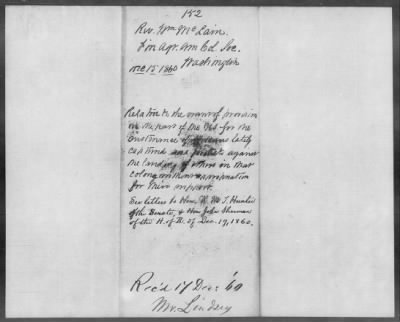 152
Rev. Wm. McLain.
Fin. Agt. Am Col. Soc.
Washington
Dec 15 1860
Relative to the want of provision
on the part of the U.S. for the
sustenance of Africans lately
captured and protests against
the landing of others in that
colony without appropriation
for their support.
See letters to Hon. R. M. T. Hunter
of the Senate, & Hon John Sherman
of the H. of R. of Dec. 19, 1860.
Rec'd 17 Dec. '60
Mr. Lindsey